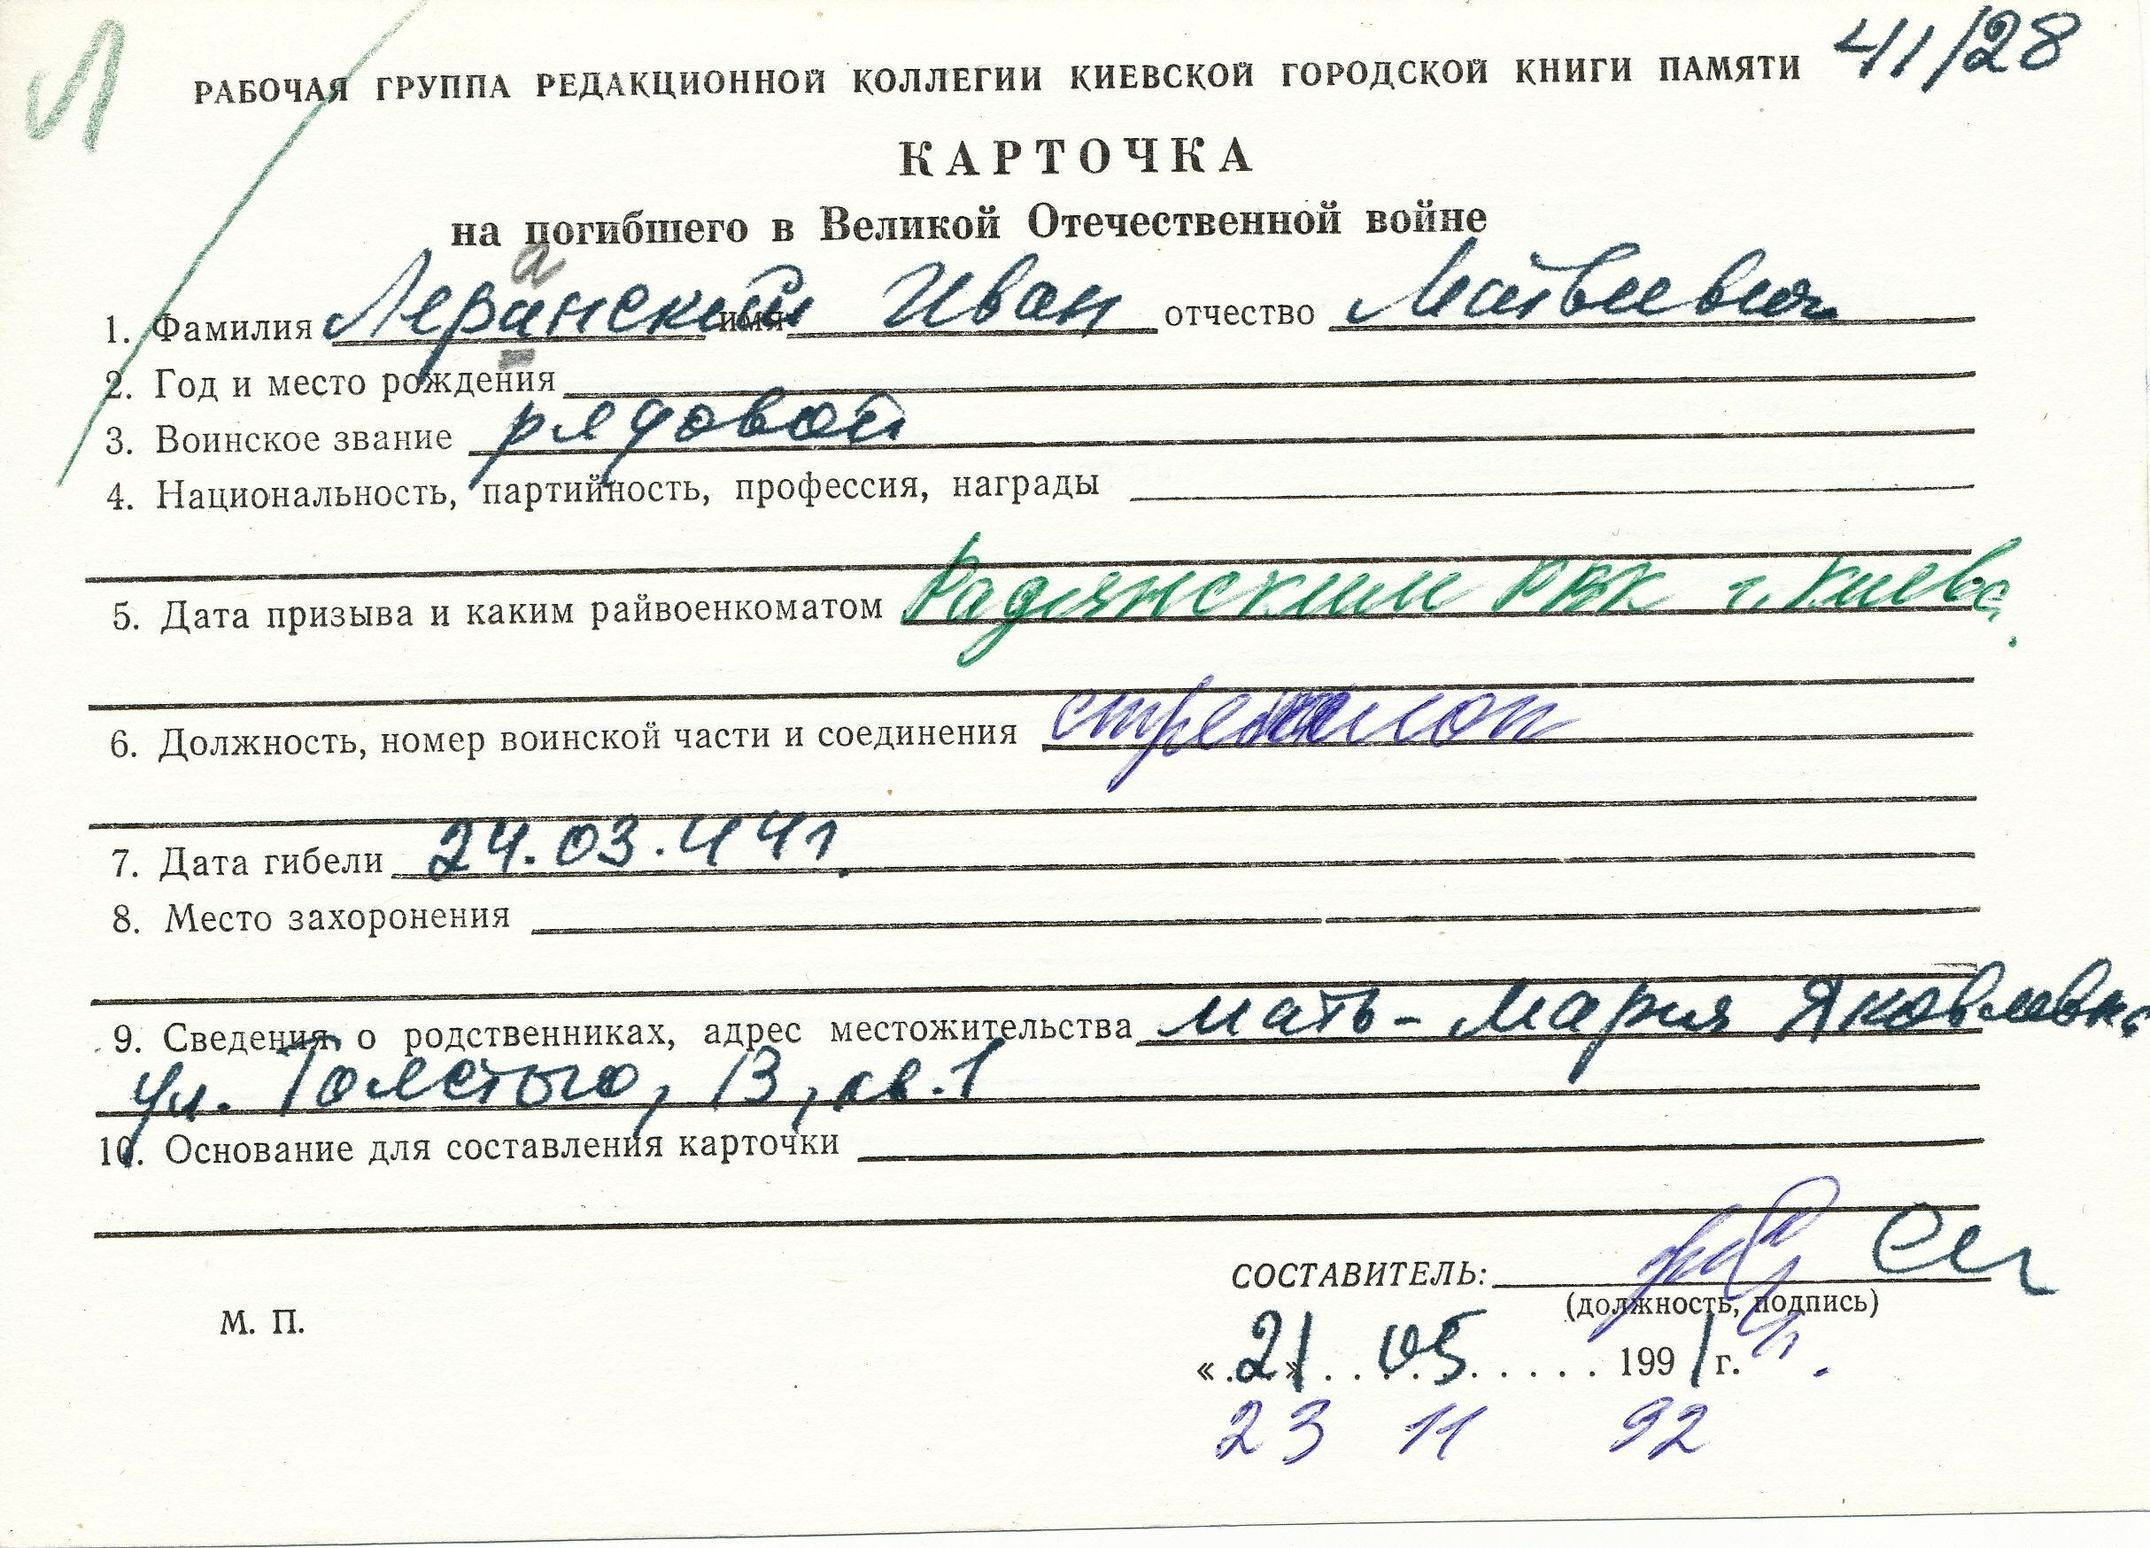 Л
41/28
РАБОЧАЯ ГРУППА РЕДАКЦИОННОЙ КОЛЛЕГИИ КИЕВСКОЙ ГОРОДСКОЙ КНИГИ ПАМЯТИ
КАРТОЧКА
на погибшего в Великой Отечественной войне
а
1. Фамилия Леранский имя Иван отчество Матвеевич
2. Год и место рождения
3. Воинское звание рядовой
4. Национальность, партийность, профессия, награды
5. Дата призыва и каким райвоенкоматом Радянским РВК г. Киева.
6. Должность, номер воинской части и соединения
7. Дата гибели 24.03.44г.
8. Место захоронения
9. Сведения о родственниках, адрес местожительства мать - Мария Яковлевна
ул. Толстого, 13, кв. 1
10. Основание для составления карточки
СОСТАВИТЕЛЬ:
(должность, подпись)
М. П.
« 21 » 05 1991 г.
23 11 92